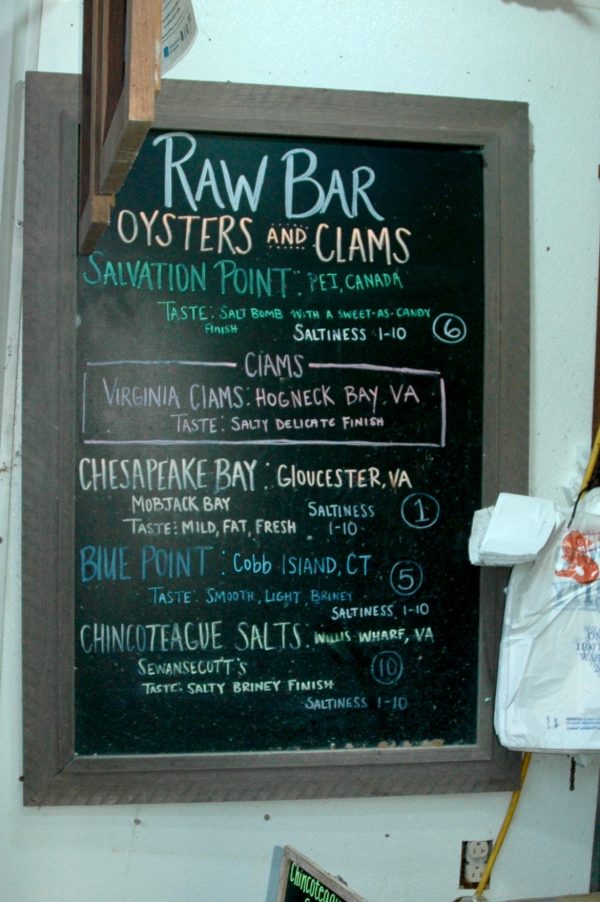 RAW BAR
OYSTERS AND CLAMS
SALVATION POINT: PEI, CANADA
TASTE: SALT BOMB WITH A SWEET-AS-CANDY
FINISH
SALTINESS 1-10 6
CLAMS
VIRGINIA CLAMS: HOGNECK BAY, VA
TASTE: SALTY DELICATE FINISH
CHESAPEAKE BAY: GLOUCESTER, VA
MOBJACK BAY SALTINESS 1
TASTE: MILD, FAT, FRESH 1-10
BLUE POINT: Cobb ISLAND, CT
TASTE: SMOOTH, LIGHT BRINEY 5
SALTINESS 1-10
CHINCOTEAGUE SALTS: WILLIS WHARF, VA
SEWANSECOTT'S 10
TASTE: SALTY BRINEY FINISH
SALTINESS 1-10